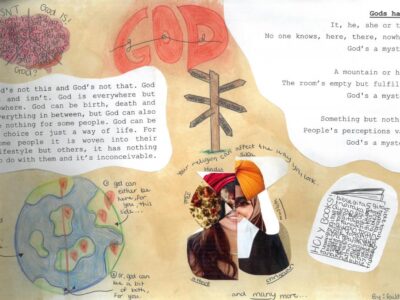 SN'T God IS!
God?
GOD
God's not this and God's not that. God
and isn't. God is everywhere but
nowhere. God can be birth, death and
everything in between, but God can also
be nothing for some people. God can be
choice or just a way of life. For
some people it is woven into their
lifestyle but others, it has nothing
to do with them and it's inconceivable.
Gods ha
It, he, she or t
No one knows, here, there, nowh
God's a myst
A mountain or h
The room's empty but fulfil
God's a myst
Something but noth
People's perceptions va
God's a myst
① god can
either be
here, for
you, this
side...
② Or god can
be a bit
of both,
for you.
Your religion can affect the way you look.
Hindu
Sikh
atheist
Christianity
and many more...
HOLY BOOKS!